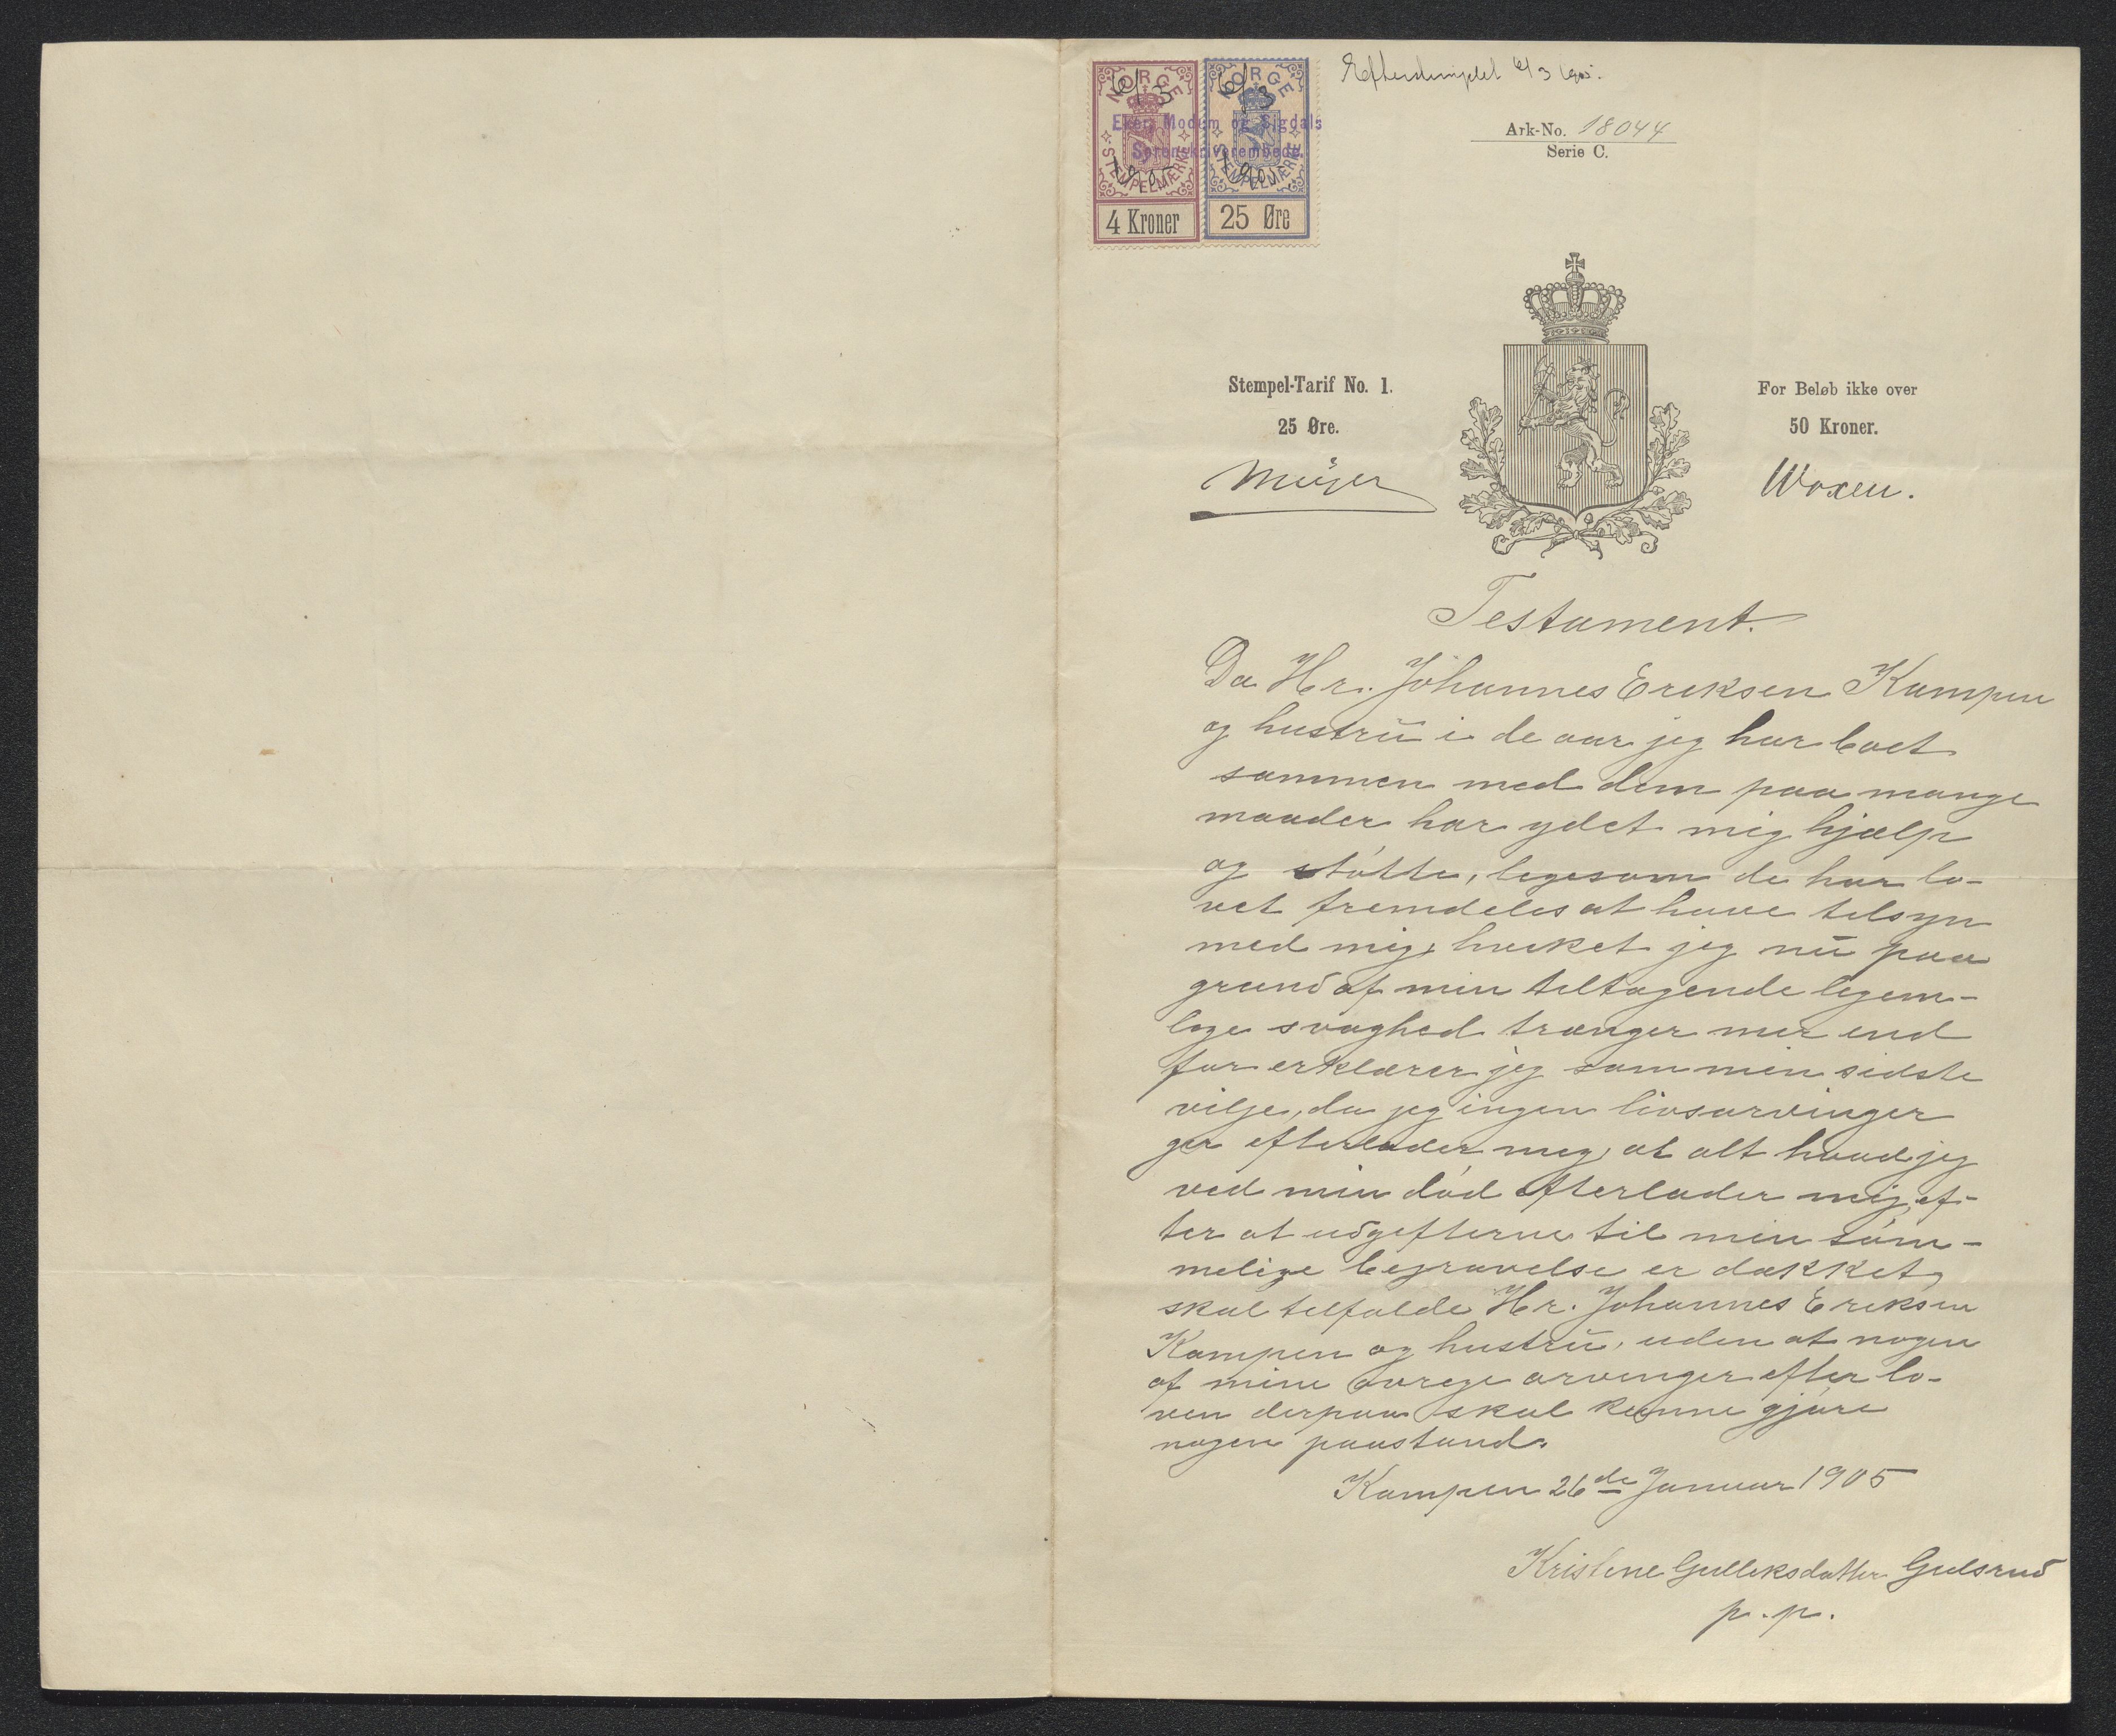 Efterstemplet 6/3 1905.
NORGE
6/3
STEMPELMÆRKE
1905
4 Kroner
NORGE
6/3
STEMPELMÆRKE
1905
25 Øre
Eker, Modum og Sigdals
Sorenskriverembede.
Ark-No. 18044
Serie C.
Stempel-Tarif No. 1.
25 Øre.
For Beløb ikke over
50 Kroner.
Meijer
Woxen.
Testament.
Da Hr. Johannes Eriksen Kampen
og hustru i de aar jeg har boet
sammen med dem paa mange
maader har ydet mig hjælp
og støtte, ligesom de har lo-
vet fremdeles at have tilsyn
med mig, hvilket jeg nu paa
grund af min tiltagende legem-
lige svaghed trænger mer end
før erklærer jeg som min sidste
vilje, da jeg ingen livsarvinger
ger efterlader mig, at alt hvad jeg
ved min død efterlader mig, ef-
ter at udgifterne til min søm-
melige begravelse er dækket,
skal tilfalde Hr. Johannes Eriksen
Kampen og hustru, uden at nogen
af mine øvrige arvinger efter lo-
ven derpaa skal kunne gjøre
nogen paastand.
Kampen 26de Januar 1905
Kristine Gulliksdatter Gulsrud
p. p.